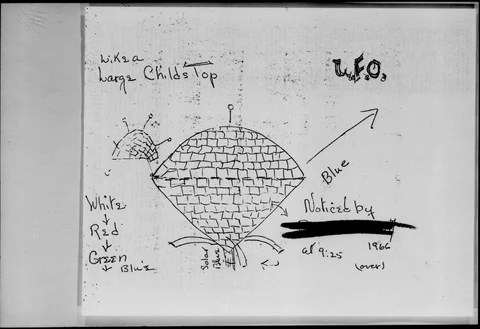 Like a
Large Childs Top
U.F.O.
White
Red
Green
Blue
Solar
Blue
Blue
Noticed by
at 9:25 1966
(over)